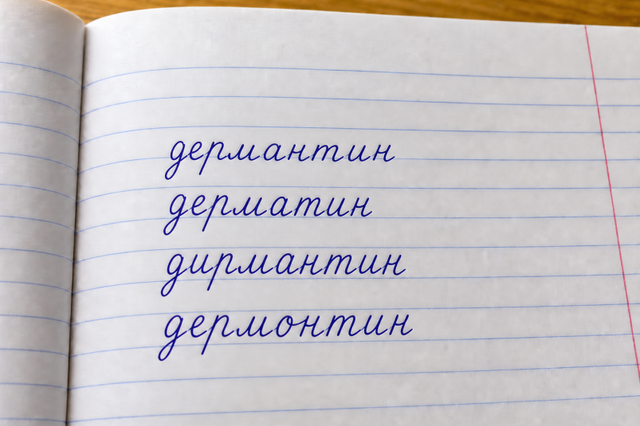 дермантин
дерматин
дирмантин
дермонтин